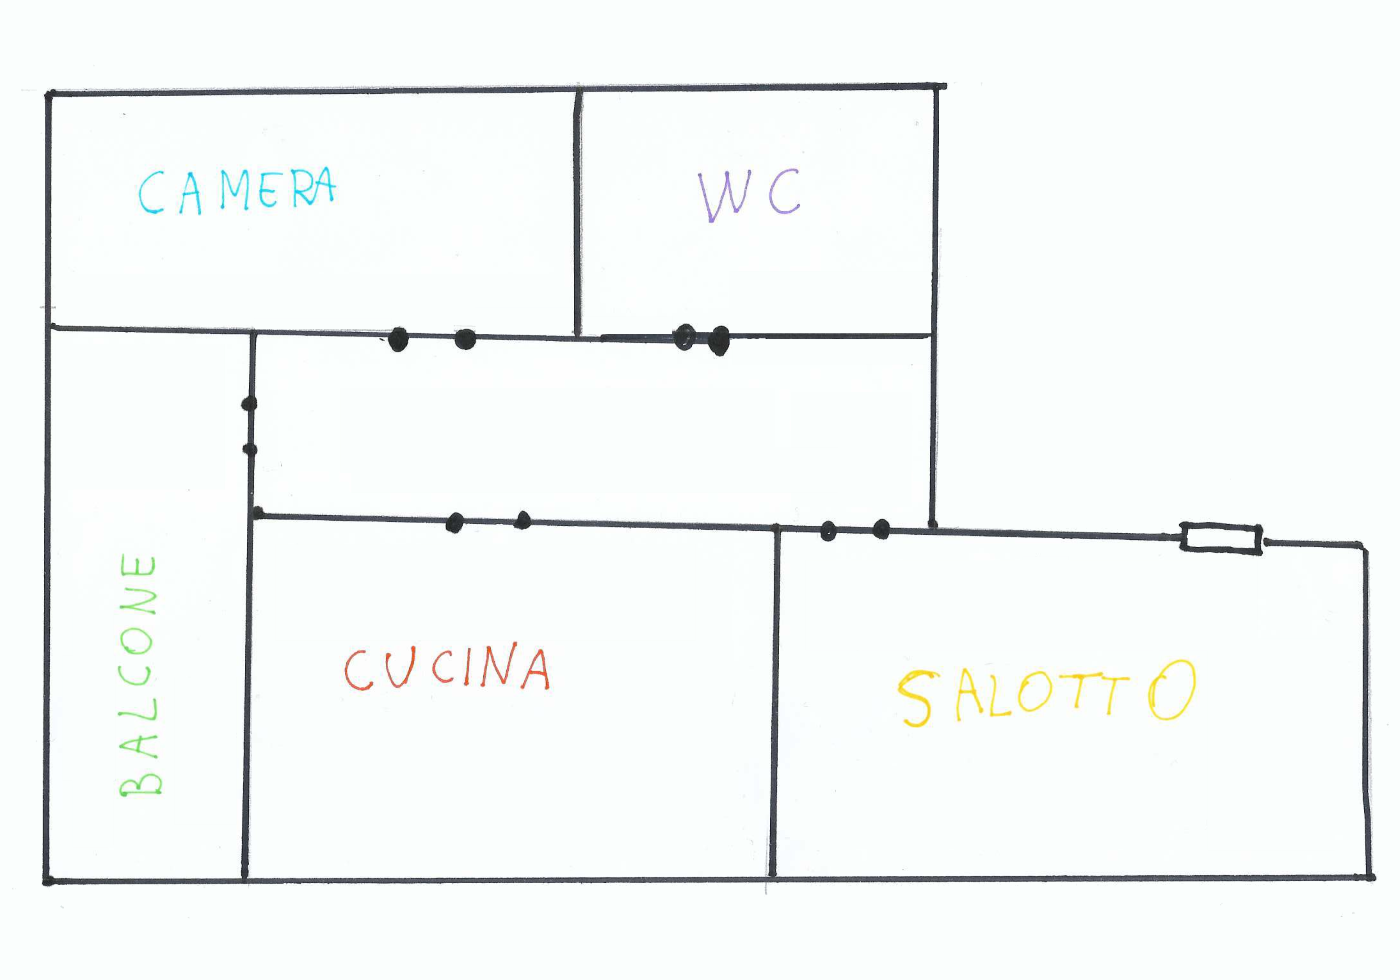 CAMERA
WC
BALCONE
CUCINA
SALOTTO